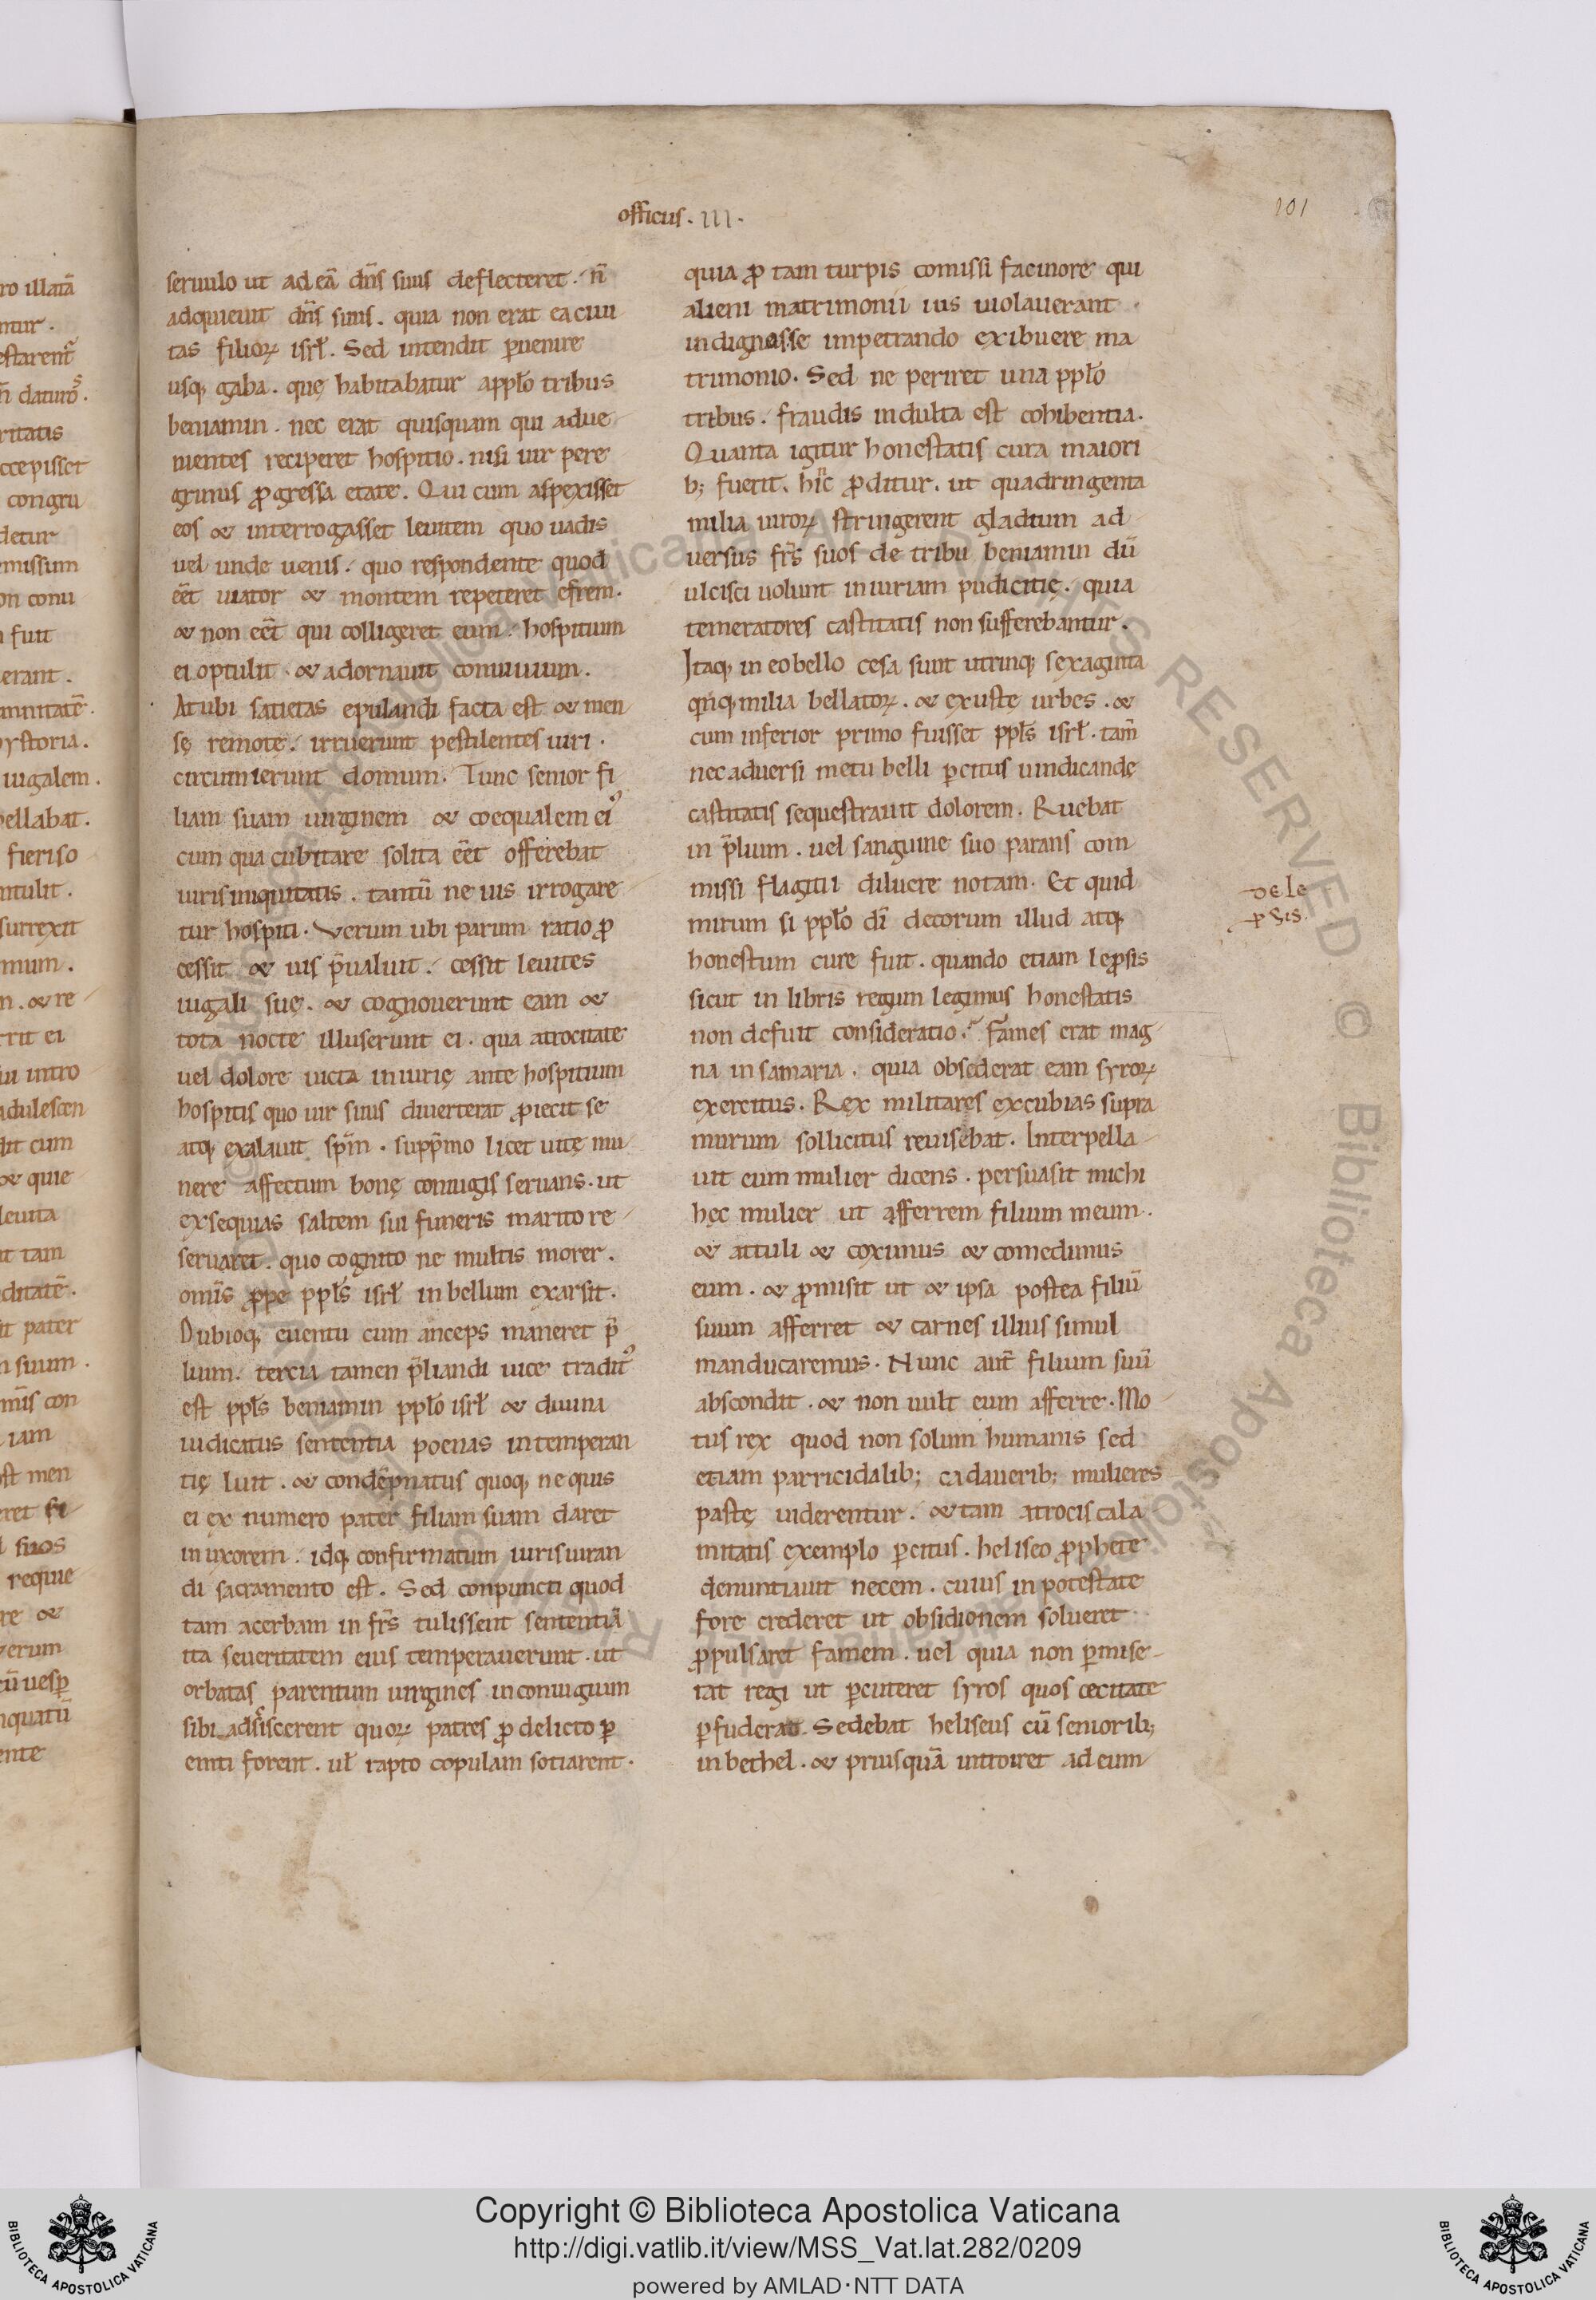 officiis. III.
101
seruulo ut ad eā dn̄s suus deflecteret. n̄
adquieuit dn̄s suus. quia non erat ea ciui
tas filioꝝ isrł. Sed intendit ꝑuenire
usq; gaba. quę habitabatur appło tribus
beniamin. nec erat quisquam qui adue
nientes reciperet hospitio. nisi uir pere
grinus ꝓgressa etate. Qui cum aspexisset
eos & interrogasset leuitem quo uadis
uel unde uenis. quo respondente quod
eēt uiator & montem repeteret efrem.
& non eēt qui colligeret eum. hospitium
ei optulit. & adornauit conuiuium.
At ubi satietas epulandi facta est & men
sę remotę. irruerunt pestilentes uiri.
circumierunt domum. Tunc senior fi
liam suam uirginem & coequalem eiꝰ
cum qua cubitare solita eēt offerebat
uiris iniquitatis. tantū ne uis irrogare
tur hospiti. Verum ubi parum ratio ꝓ
cessit & uis p̄ualuit. cessit leuites
iugali suę. & cognouerunt eam &
tota nocte illuserunt ei. qua atrocitate
uel dolore uicta iniurię ante hospitium
hospitis quo uir suus diuerterat ꝓiecit se
atq; exalauit spm̄. supp̄mo licet uitę mu
nere affectum bonę coniugis seruans. ut
exsequias saltem sui funeris marito re
seruaret. quo cognito ne multis morer.
omīs ꝓpe ppłs isrł in bellum exarsit.
Dubioq; euentu cum anceps maneret p̄
lium. tercia tamen p̄liandi uice traditꝰ
est ppłs beniamin ppło isrł & diuina
iudicatus sententia poenas intemperan
tię luit. & condēpnatus quoq; ne quis
ei ex numero pater filiam suam daret
in uxorem. idq; confirmatum iurisiuran
di sacramento est. Sed conpuncti quod
tam acerbam in fr̄s tulissent sententiā
ita seueritatem eius temperauerunt. ut
orbatas parentum uirgines in coniugium
sibi adsciscerent quoꝝ patres ꝓ delicto ꝑ
emti forent. uł rapto copulam sotiarent.
quia ꝓ tam turpis comissi facinore qui
alieni matrimonii ius uiolauerant
indignos se impetrando exibuere ma
trimonio. Sed ne periret una ppło
tribus. fraudis indulta est cohibentia.
Quanta igitur honestatis cura maiori
b; fuerit. hīc ꝓditur. ut quadringenta
milia uiroꝝ stringerent gladium ad
uersus fr̄s suos de tribu beniamin dū
ulcisci uolunt iniuriam pudicitię. quia
temeratores castitatis non sufferebantur.
Itaq; in eo bello cesa sunt utrinq; sexaginta
qnq; milia bellatoꝝ. & exustę urbes. &
cum inferior primo fuisset ppłs isrł. tam̄
nec aduersi metu belli ꝑcitus uindicandę
castitatis sequestrauit dolorem. Ruebat
in p̄lium. uel sanguine suo parans com
missi flagitii diluere notam. Et quid
mirum si ppło dī decorum illud atq;
honestum cure fuit. quando etiam leꝓsis
sicut in libris regum legimus honestatis
non defuit consideratio. Fames erat mag
na in samaria. quia obsederat eam syroꝝ
exercitus. Rex militares excubias supra
murum sollicitus reuisebat. Interpella
uit eum mulier dicens. persuasit michi
hęc mulier ut afferrem filium meum.
& attuli & coximus & comedimus
eum. & ꝓmisit ut & ipsa postea filiū
suum afferret & carnes illius simul
manducaremus. Nunc aut̄ filium suū
abscondit. & non uult eum afferre. Mo
tus rex quod non solum humanis sed
etiam parricidalib; cadauerib; mulieres
pastę uiderentur. & tam atrocis cala
mitatis exemplo ꝑcitus. heliseo ꝓphete
denuntiauit necem. cuius in potestate
fore crederet ut obsidionem solueret
ꝓpulsaret famem. uel quia non ꝑmise
rat regi ut ꝑcuteret syros quos cecitate
ꝑfuderat. Sedebat heliseus cū seniorib;
in bethel. & priusquā introiret ad eum
de le
pSis.
Copyright © Biblioteca Apostolica Vaticana
http://digi.vatlib.it/view/MSS_Vat.lat.282/0209
powered by AMLAD·NTT DATA